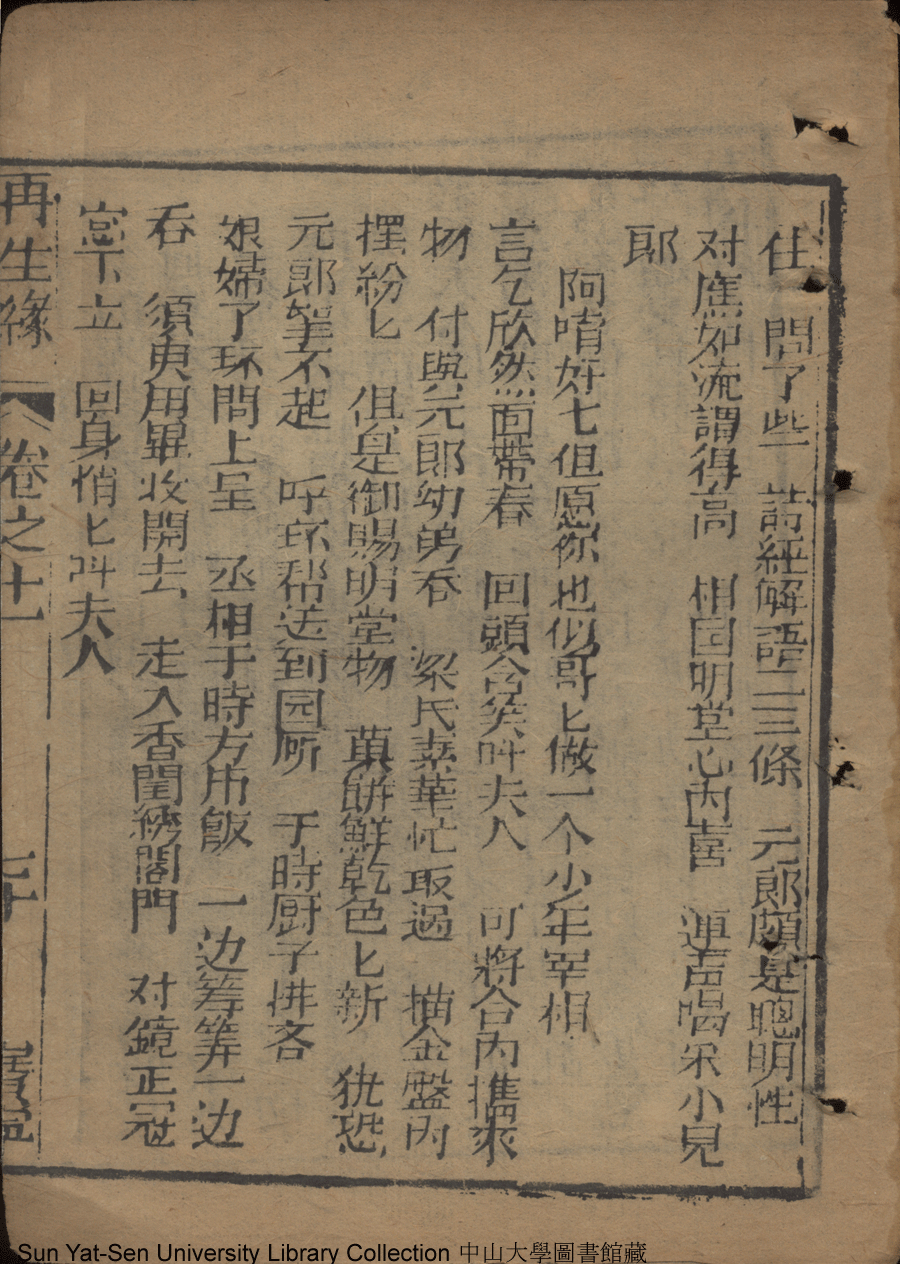 住　問了些　詩經解語二三條　元郎頗是聰明性
对應如流謂得高　相国明堂心内喜　連声喝采小兒
郎
阿唷好七但愿你也似哥匕做一个少年宰相
言乞欣然面帶春　回頭含笑呌夫人　可將合内擕來
物　付與元郎幼弟吞　梁氏素華忙取過　描金盤内
擺紛匕　但是御賜明堂物　菓餅鮮乾色匕新　犹恐
元郎拏不起　呼环帮送到园所　于時厨子排吝
娘婦了环問上呈　丞相于時方用飯　一边筹筭一边
吞　須臾用畢收開去　走入香閨綉閣門　对鏡正冠
下立　回身悄匕呌夫人
再生緣　卷之十一　七十
Sun Yat-Sen University Library Collection 中山大學圖書館藏